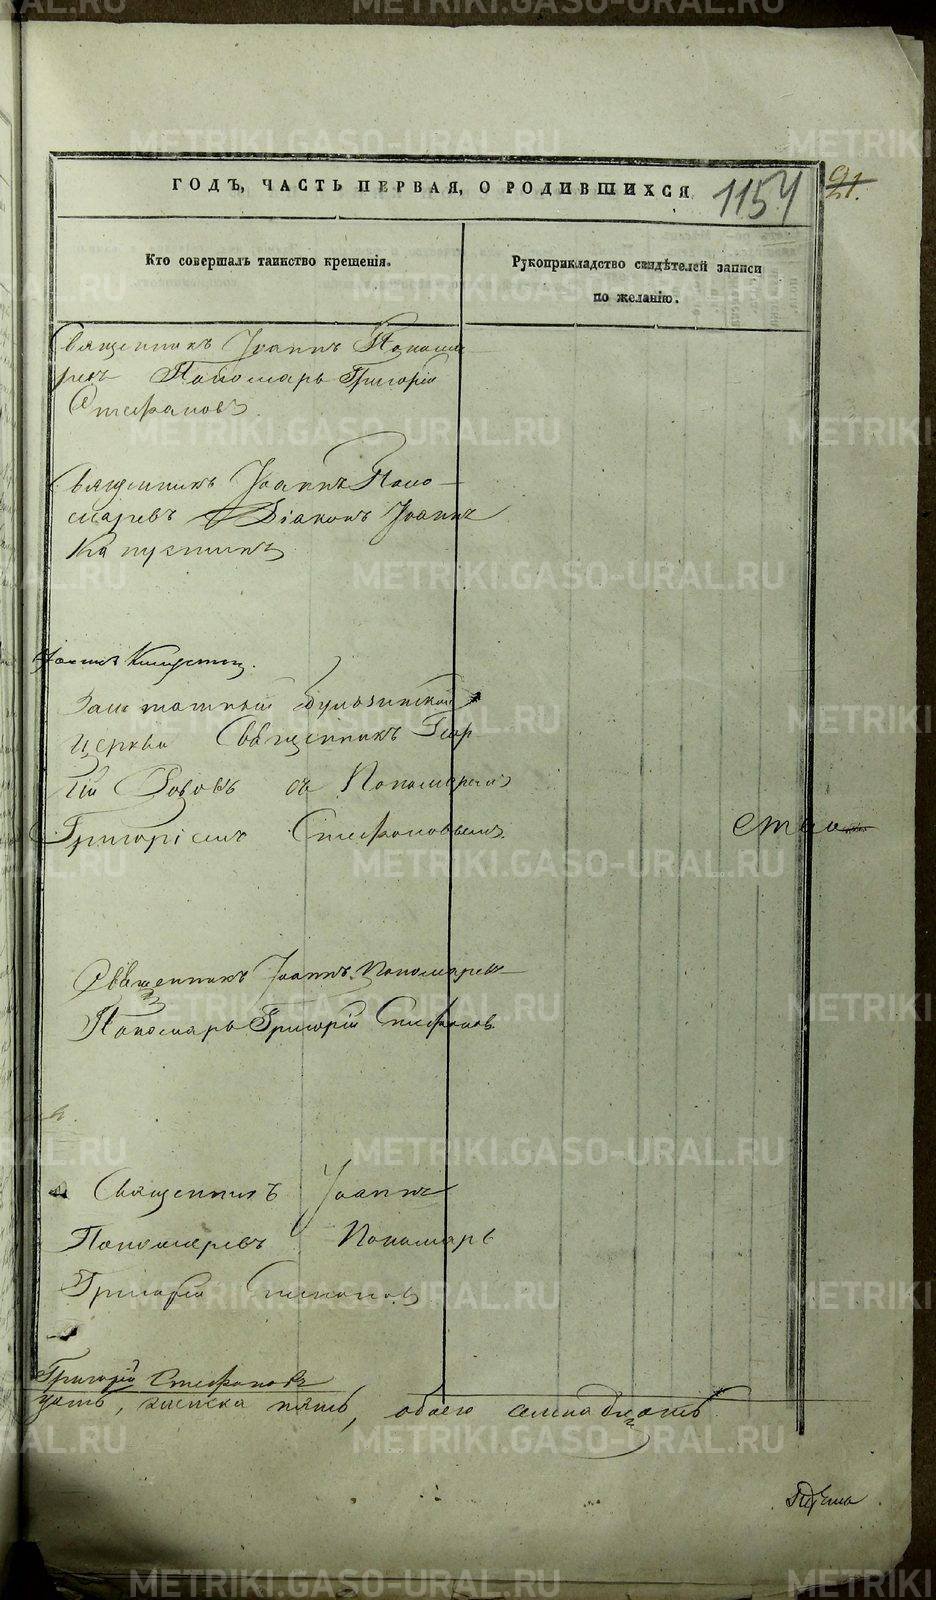 ГОДЪ, ЧАСТЬ ПЕРВАЯ, О РОДИВШИХСЯ. 1154 21.
Кто совершалъ таинство крещенія.
Рукоприкладство свидѣтелей записи
по желанію.
Священникъ Іоаннъ Понома
ревъ Пономарь Григорій
Стефановъ
Священникъ Іоаннъ Поно-
маревъ Діаконъ Іоаннъ
Капустинъ
Іоаннъ Капустинъ.
Заштатный
церкви Священникъ Геор
гій Розовъ съ Пономаремъ
Григоріемъ Стефановымъ
ство
Священникъ Іоаннъ Пономаревъ
Пономарь Григорій Стефановъ
Священникъ Іоаннъ
Пономаревъ Пономарь
Григорій Стефановъ
Григорій Стефановъ
цать, женска пять, обоего семнадцать
METRIKI.GASO-URAL.RU